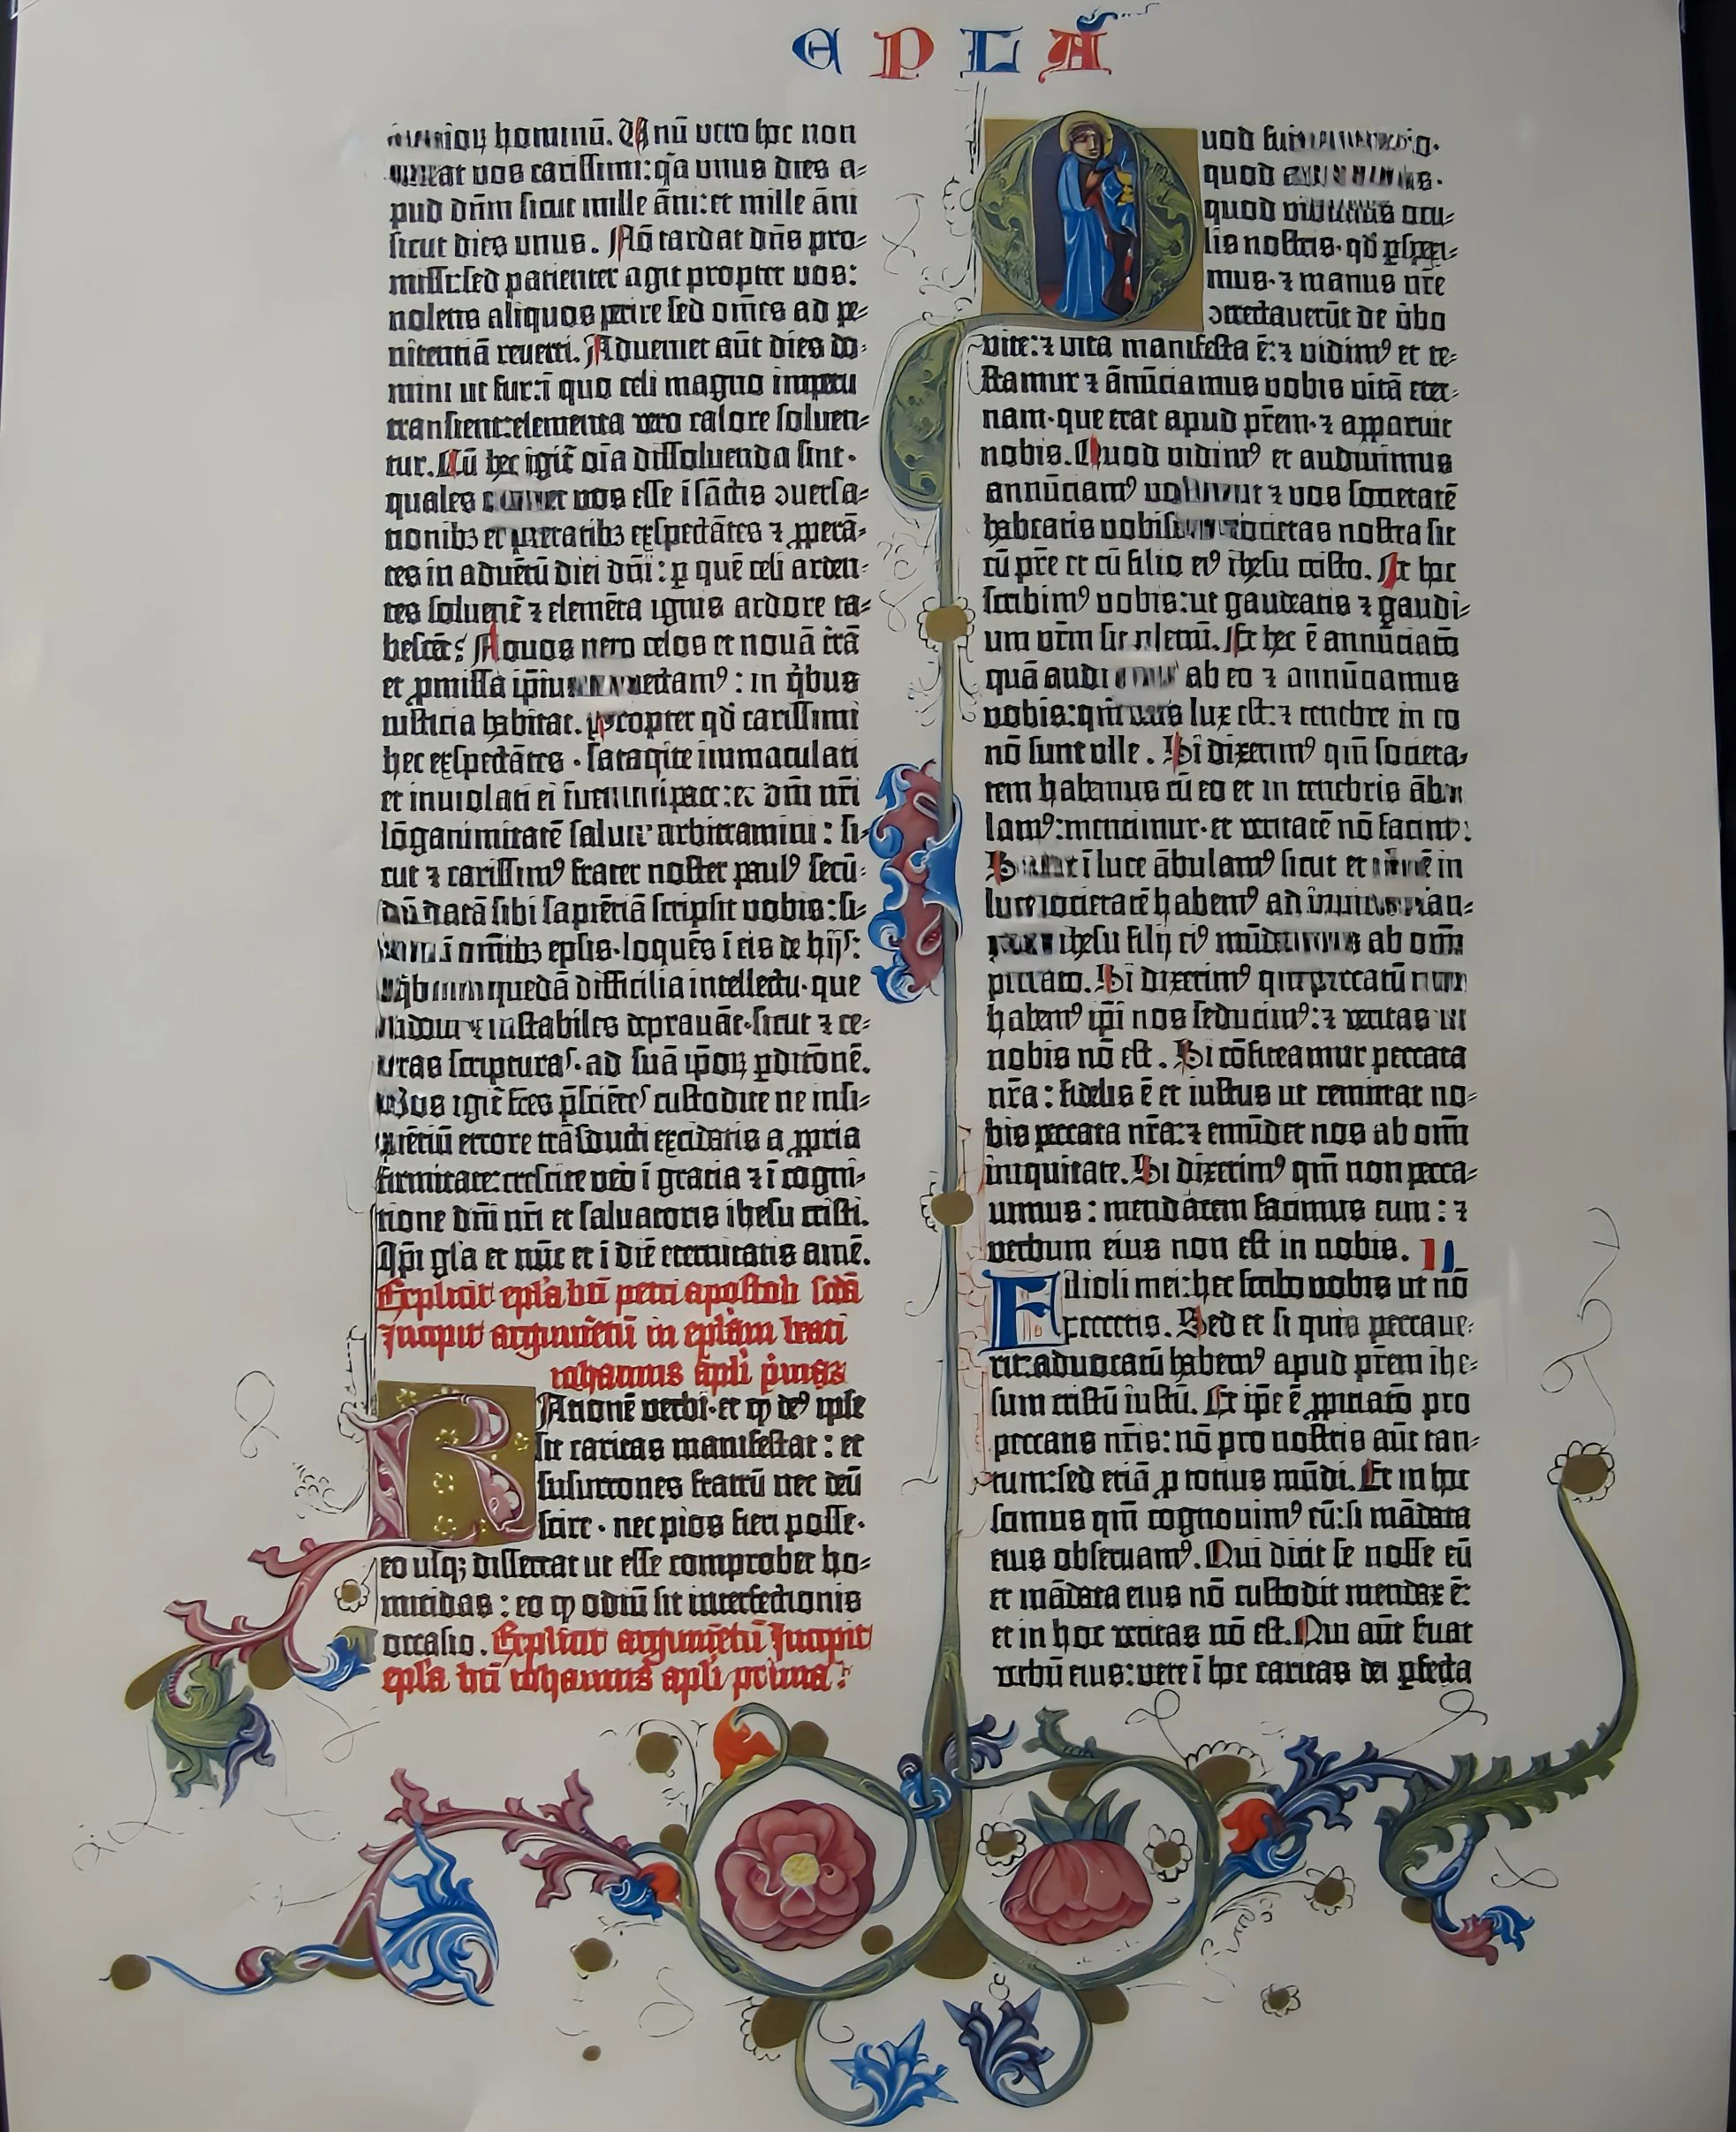 EPLA
hominū. Unū vero hoc non
lateat vos carissimi: q̄a unus dies a⸗
pud dn̄m sicut mille āni: et mille āni
sicut dies unus. Nō tardat dn̄s pro⸗
missū: sed patienter agit propter vos:
nolens aliquos perire sed om̄es ad pe⸗
nitentiā reverti. Adveniet aūt dies do⸗
mini ut fur: ī quo celi magno impetu
transient: elementa vero calore solven⸗
tur. Cū hec igit̄ oīa dissolvenda sint·
quales vos esse ī sāctis ↄversa⸗
tionibꝫ et pietatibꝫ exspectātes ⁊ ꝓperā⸗
tes in adventū diei dn̄i: ꝑ quē celi arden⸗
tes solvent̄ ⁊ elemēta ignis ardore ta⸗
bescēt? Novos vero celos et novā t̄rā
et ꝓmissa ip̄iu expectamꝰ: in q̇bus
iusticia habitat. Propter qđ carissimi
hec exspectātes · satagite immaculati
et inviolati ei īveniri ī pace: et dn̄i nr̄i
lōganimitatē salutē arbitramini: si⸗
cut ⁊ carissimꝰ frater noster paulꝰ secū⸗
dū datā sibi sapiētiā scripsit vobis: si⸗
ī om̄ibꝫ ep̄lis· loquēs ī eis de hijs:
quedā difficilia intellectu· que
indocti ⁊ instabiles depravāt· sicut ⁊ ce⸗
teras scripturas· ad suā ip̄oꝝ ꝑditionē.
Vos igit̄ fr̄es p̄sciētes custodite ne insi⸗
piētiū errore trāsducti excidatis a ꝓpria
firmitate: crescite vero ī gracia ⁊ ī cogni⸗
tione dn̄i nr̄i et salvatoris ihesu cristi.
Ip̄i gl̄a et nūc et ī diē eternitatis amē.
Explicit ep̄la bt̄i petri apostoli scd̄a
Incipit argumētū in ep̄lam beati
iohannis apl̄i prima
Rationē verbi· et ꝙ deꝰ ipse
sit caritas manifestat: et
susurrones fratrū nec deū
scire · nec pios fieri posse·
eo usqꝫ dissertat ut esse comprobet ho⸗
micidas: eo ꝙ odiū sit interfectionis
occasio. Explicit argumētū Incipit
ep̄la bt̄i iohannis apl̄i prima:
Quod fuit
quod
quod vidimus ocu⸗
lis nostris· qđ ꝑspexi⸗
mus· ⁊ manus nr̄e
ↄtrectaverūt de v̇bo
vite: ⁊ vita manifesta ē: ⁊ vidimꝰ et te⸗
stamur ⁊ ānūciamus vobis vitā eter⸗
nam· que erat apud pr̄em· ⁊ apparuit
nobis. Quod vidimꝰ et audivimus
annūciamꝰ vobis ut ⁊ vos societatē
habeatis nobiscum societas nostra sit
cū pr̄e et cū filio eiꝰ ihesu cristo. Et hec
scribimꝰ vobis: ut gaudeatis ⁊ gaudi⸗
um vr̄m sit plenū. Et hec ē annūciatō
quā audivimꝰ ab eo ⁊ annūciamus
vobis: qm̄ deus lux est: ⁊ tenebre in eo
nō sunt ulle. Si dixerimꝰ qm̄ societa⸗
tem habemus cū eo et in tenebris ābu
lamꝰ: mentimur· et veritatē nō facimꝰ:
ī luce ābulamꝰ sicut et in
luce societatē habemꝰ ad invicem san⸗
ihesu filij eiꝰ mūdat nos ab om̄i
peccato. Si dixerimꝰ qm̄ peccatū non
habemꝰ ip̄i nos seducimꝰ: ⁊ veritas in
nobis nō est. Si cōfiteamur peccata
nr̄a: fidelis ē et iustus ut remittat no⸗
bis peccata nr̄a: ⁊ emūdet nos ab om̄i
iniquitate. Si dixerimꝰ qm̄ non pecca⸗
vimus: mendacem facimus eum: ⁊
verbum eius non est in nobis. II
Filioli mei: hec scribo vobis ut nō
peccetis. Sed et si quis peccave⸗
rit: advocatū habemꝰ apud pr̄em ihe⸗
sum cristū iustū. Et ip̄e ē ꝓpitiatō pro
peccatis nr̄is: nō pro nostris aūt tan⸗
tum: sed etiā ꝓ totius mūdi. Et in hoc
scimus qm̄ cognovimꝰ eū: si mādata
eius observamꝰ. Qui dicit se nosse eū
et mādata eius nō custodit mendax ē:
et in hoc veritas nō est. Qui aūt servat
verbū eius: vere ī hoc caritas dei ꝑfecta